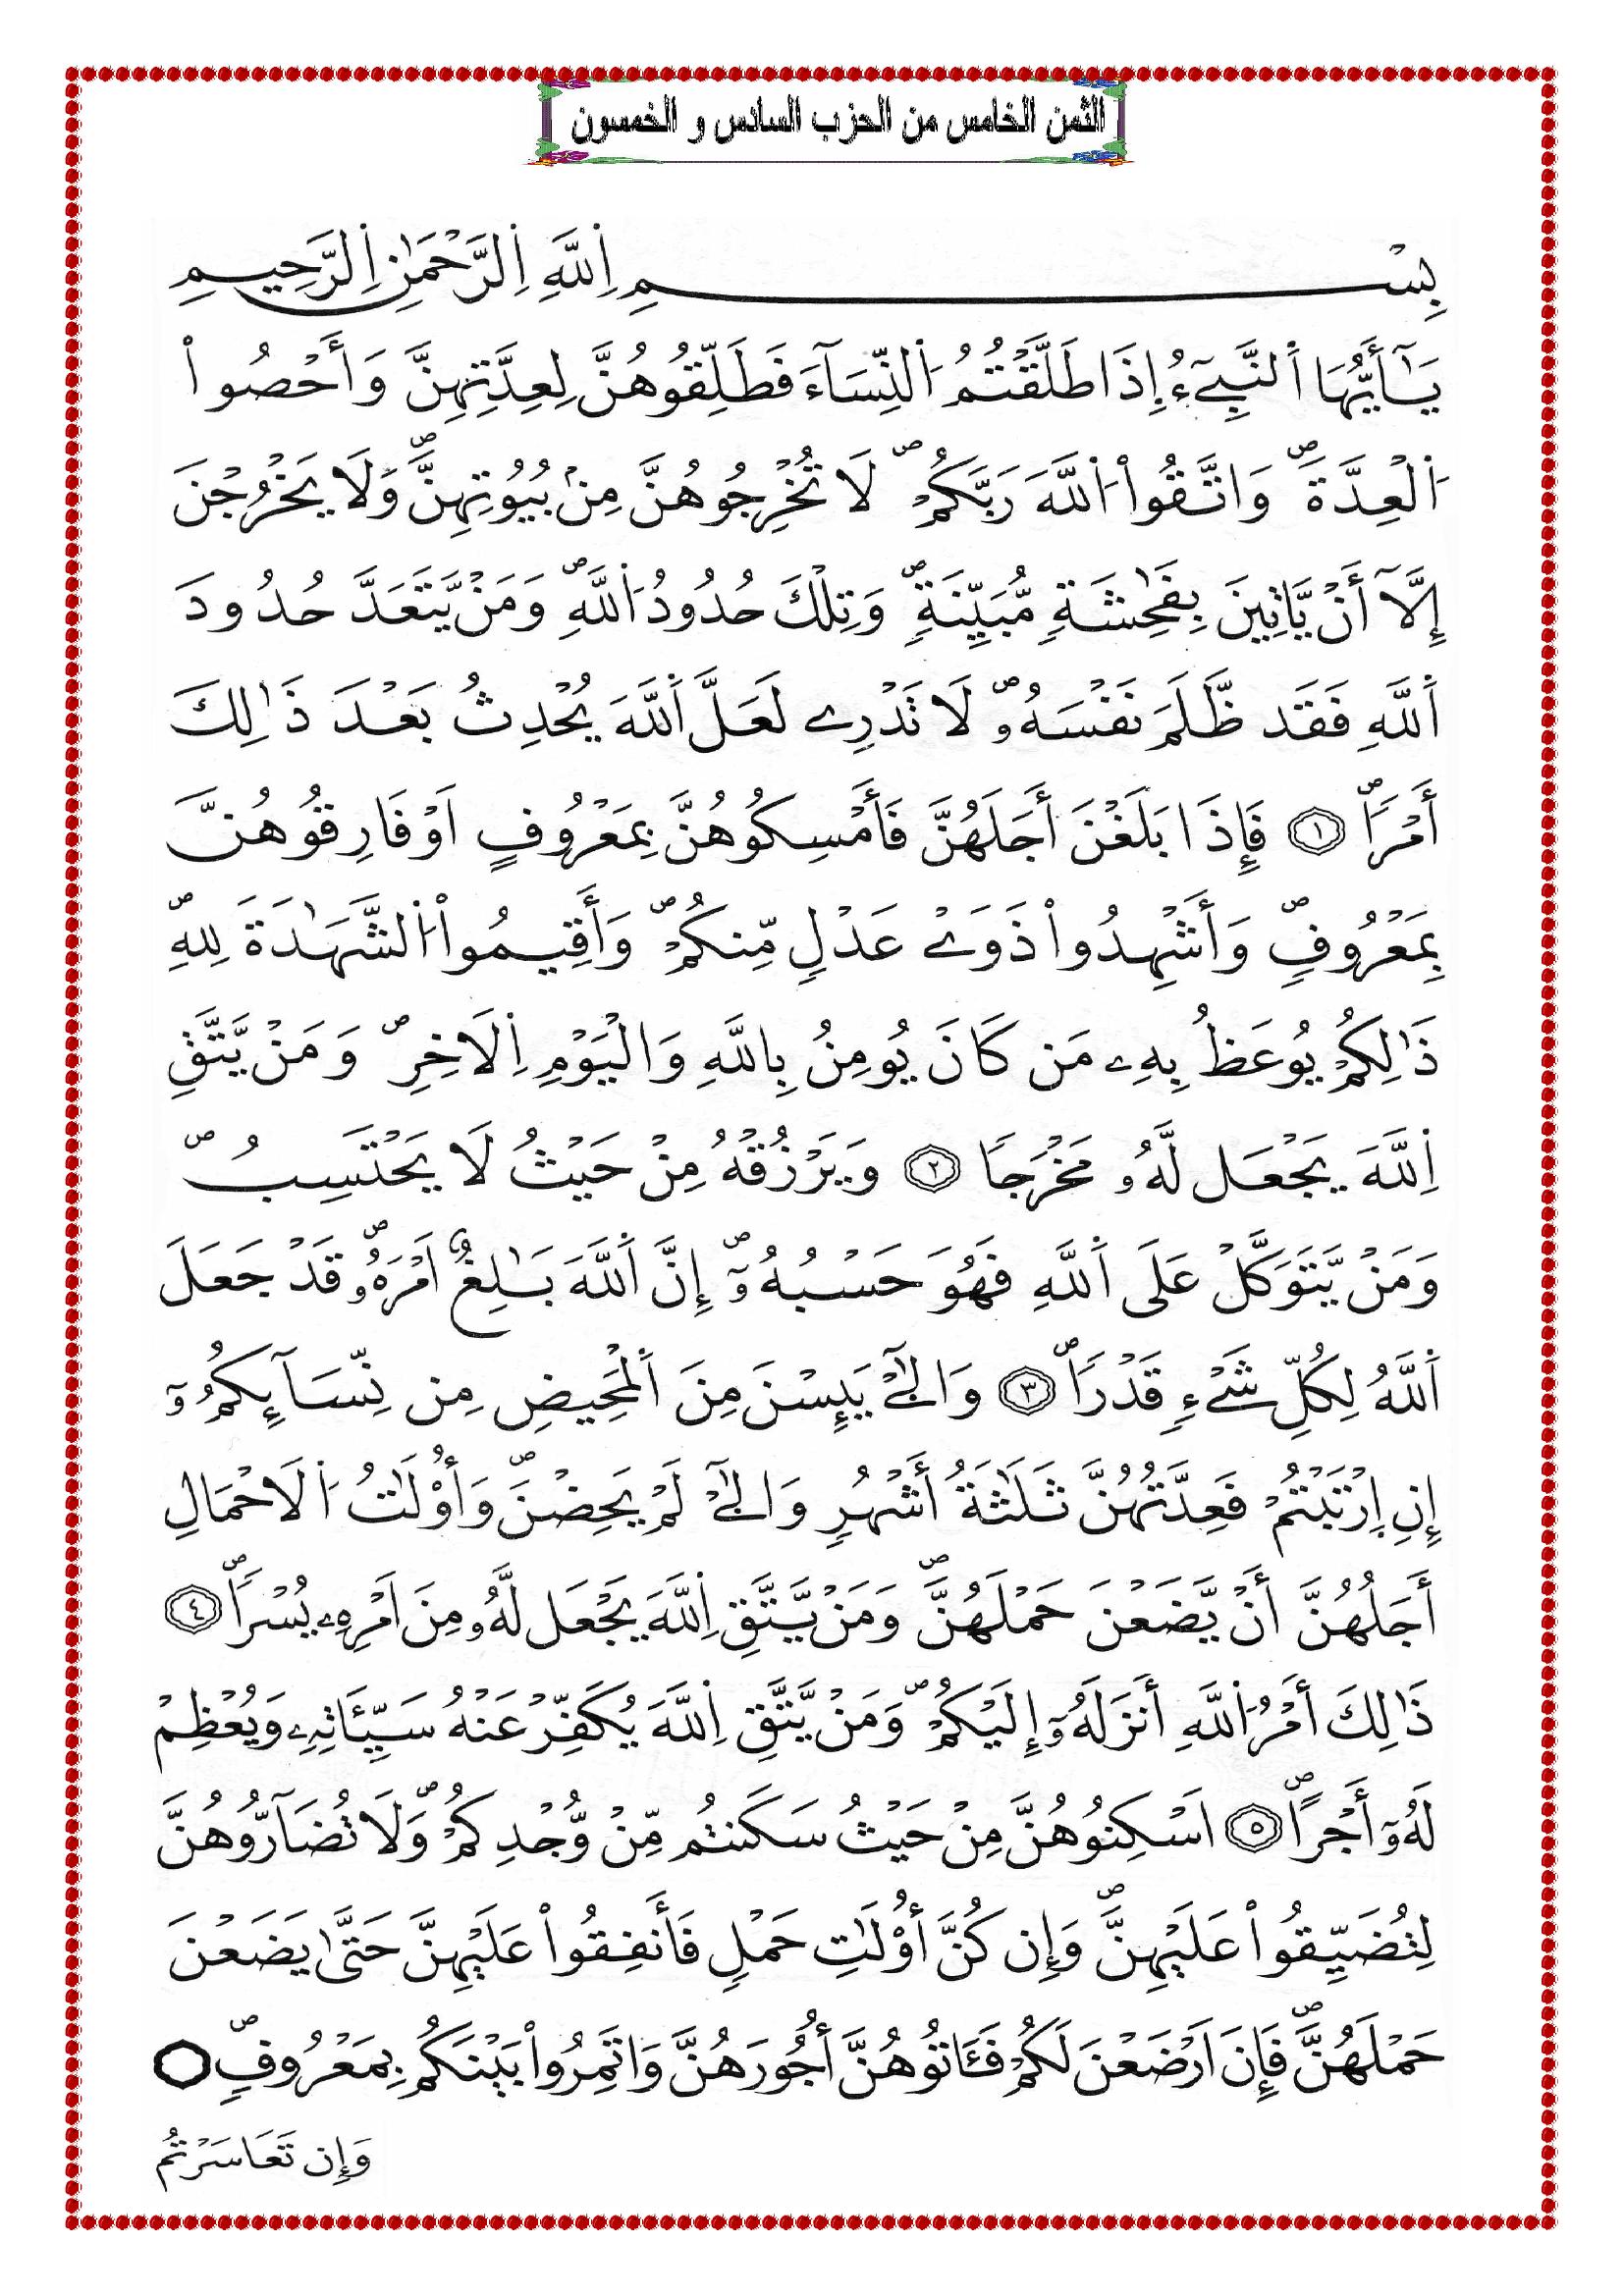 الثمن الخامس من الحزب السادس و الخمسون
بِسْمِ اِ۬للَّهِ اِ۬لرَّحْمَٰنِ اِ۬لرَّحِيمِ
يَٰٓأَيُّهَا اَ۬لنَّبِےٓءُ اِ۪ذَا طَلَّقْتُمُ اُ۬لنِّسَآءَ فَطَلِّقُوهُنَّ لِعِدَّتِهِنَّ وَأَحْصُواْ
اُ۬لْعِدَّةَۖ وَاتَّقُواْ اُ۬للَّهَ رَبَّكُمْۖ لَا تُخْرِجُوهُنَّ مِنۢ بُيُوتِهِنَّۖ وَلَا يَخْرُجْنَ
إِلَّآ أَنْ يَّاتِينَ بِفَٰحِشَةٖ مُّبَيِّنَةٖۖ وَتِلْكَ حُدُودُ اُ۬للَّهِۖ وَمَنْ يَّتَعَدَّ حُدُودَ
اَ۬للَّهِ فَقَد ظَّلَمَ نَفْسَهُۥۖ لَا تَدْرِے لَعَلَّ اَ۬للَّهَ يُحْدِثُ بَعْدَ ذَٰلِكَ
أَمْراٗۖ ١ فَإِذَا بَلَغْنَ أَجَلَهُنَّ فَأَمْسِكُوهُنَّ بِمَعْرُوفٍ اَوْ فَارِقُوهُنَّ
بِمَعْرُوفٖۖ وَأَشْهِدُواْ ذَوَےْ عَدْلٖ مِّنكُمْۖ وَأَقِيمُواْ اُ۬لشَّهَٰدَةَ لِلهِۖ
ذَٰلِكُمْ يُوعَظُ بِهِۦ مَن كَانَ يُومِنُ بِاللَّهِ وَالْيَوْمِ اِ۬لَاخِرِۖ وَمَنْ يَّتَّقِ
اِ۬للَّهَ يَجْعَل لَّهُۥ مَخْرَجاٗ ٢ وَيَرْزُقْهُ مِنْ حَيْثُ لَا يَحْتَسِبُۖ
وَمَنْ يَّتَوَكَّلْ عَلَى اَ۬للَّهِ فَهُوَ حَسْبُهُۥٓۖ إِنَّ اَ۬للَّهَ بَٰلِغٌ اَمْرَهُۥۖ قَدْ جَعَلَ
اَ۬للَّهُ لِكُلِّ شَےْءٖ قَدْراٗۖ ٣ وَالِٰٓےْ يَئِسْنَ مِنَ اَ۬لْمَحِيضِ مِن نِّسَآئِكُمُۥٓ
إِنِ اِ۪رْتَبْتُمْ فَعِدَّتُهُنَّ ثَلَٰثَةُ أَشْهُرٖ وَالِٰٓےْ لَمْ يَحِضْنَۖ وَأُوْلَٰتُ اُ۬لَاحْمَالِ
أَجَلُهُنَّ أَنْ يَّضَعْنَ حَمْلَهُنَّۖ وَمَنْ يَّتَّقِ اِ۬للَّهَ يَجْعَل لَّهُۥ مِنَ اَمْرِهِۦ يُسْراٗۖ ٤
ذَٰلِكَ أَمْرُ اُ۬للَّهِ أَنزَلَهُۥٓ إِلَيْكُمْۖ وَمَنْ يَّتَّقِ اِ۬للَّهَ يُكَفِّرْ عَنْهُ سَيِّـَٔاتِهِۦ وَيُعْظِمْ
لَهُۥٓ أَجْراًۖ ٥ اَسْكِنُوهُنَّ مِنْ حَيْثُ سَكَنتُم مِّنْ وُّجْدِكُمْۖ وَلَا تُضَآرُّوهُنَّ
لِتُضَيِّقُواْ عَلَيْهِنَّۖ وَإِن كُنَّ أُوْلَٰتِ حَمْلٖ فَأَنفِقُواْ عَلَيْهِنَّ حَتَّىٰ يَضَعْنَ
حَمْلَهُنَّۖ فَإِنَ اَرْضَعْنَ لَكُمْ فَـَٔاتُوهُنَّ أُجُورَهُنَّ وَاتَمِرُواْ بَيْنَكُم بِمَعْرُوفٖۖ
وَإِن تَعَاسَرْتُمْ